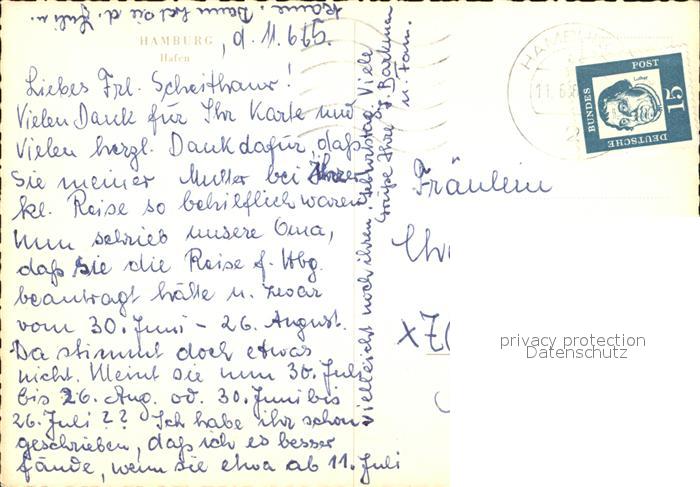 HAMBURG
Hafen
, d. 11.6.
Liebes Frl. Scheithaur!
Vielen Dank für Ihr Karte und
Vielen herzl. Dank dafür, daß
Sie meiner Mutter bei Ihrer
kl. Reise so behilflich waren.
Nun schrieb unsere Oma,
daß sie die Reise f. Hbg.
beantragt hätte u. zwar
vom 30. Juni - 26. August.
Da stimmt doch etwas
nicht. Meint sie nun 30. Juli
bis 26. Aug. od. 30. Juni bis
26. Juli?? Ich habe ihr schon
geschrieben, daß ich es besser
fände, wenn sie etwa ab 11. Juli
käme. Dann hat sie d. Juli u.
vielleicht noch ihren Geburtstag. Viele
Grüße Ihre J. Barkemann
u. Fam.
Fräulein
Chr
X7
HAMBURG
11.6.6
2
DEUTSCHE
BUNDES
POST
15
Luther
privacy protection
Datenschutz